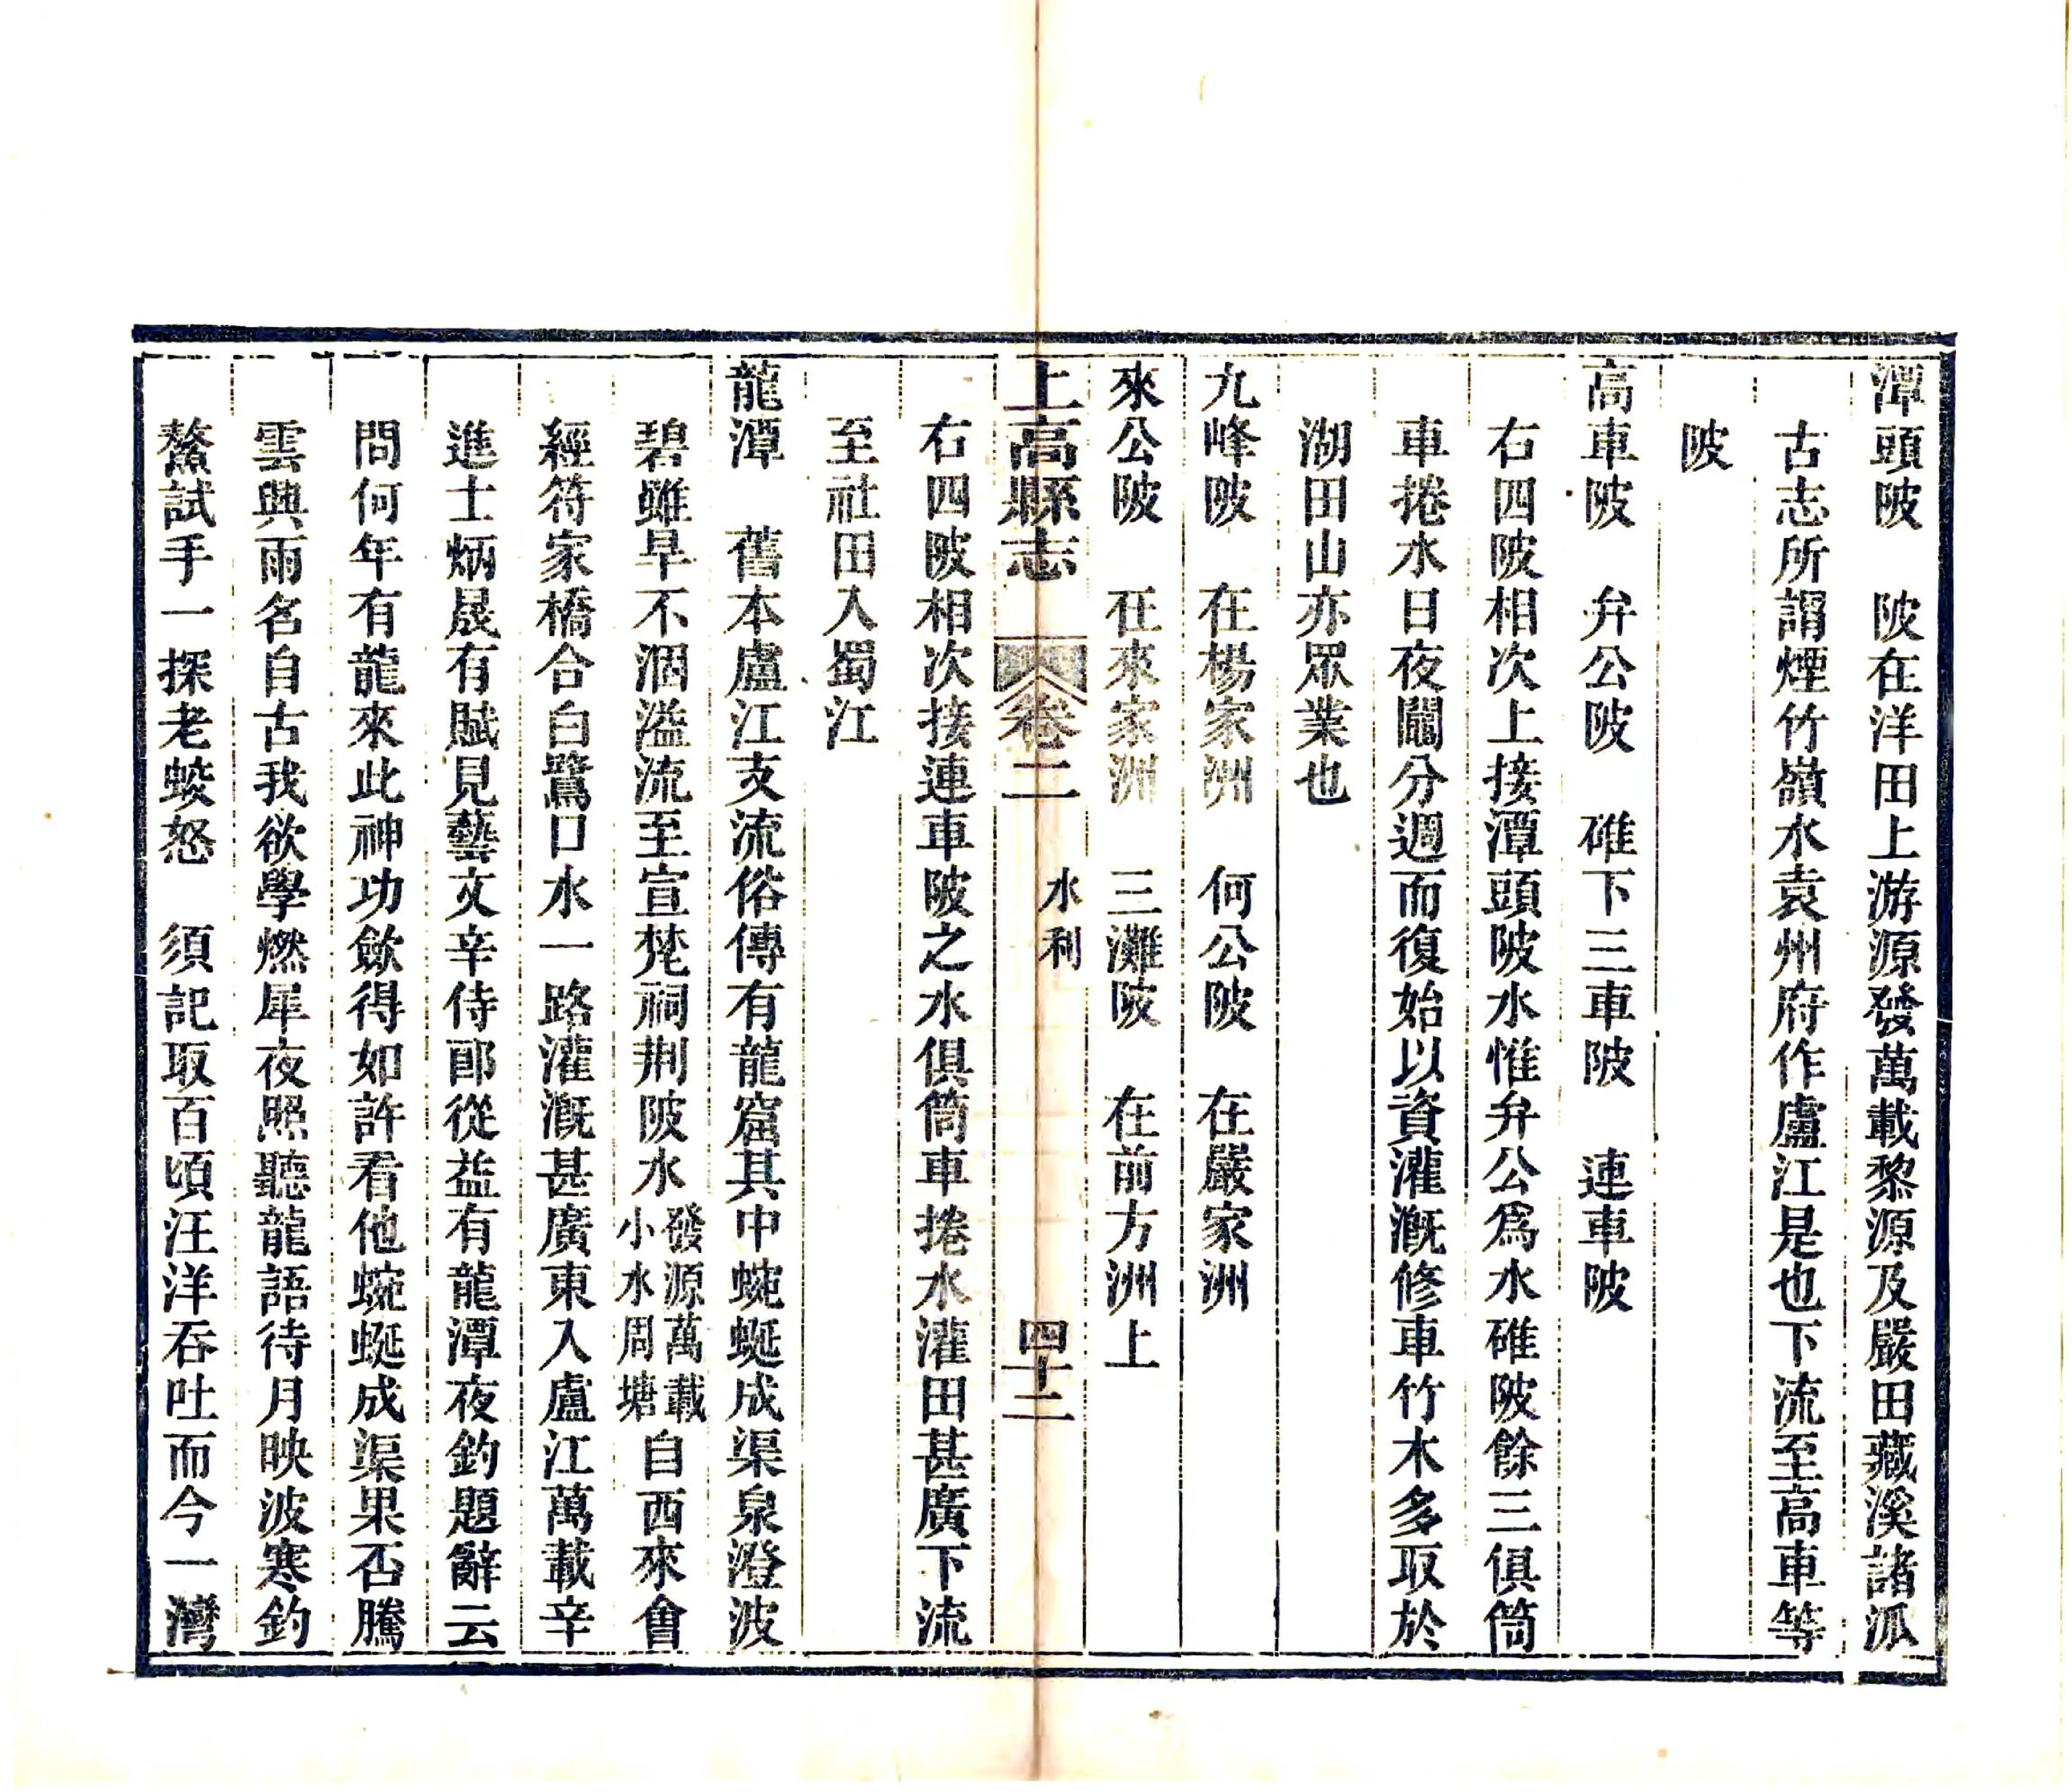 潭頭陂　陂在洋田上游源發萬載黎源及嚴田藏溪諸派
古志所謂煙竹嶺水袁州府作盧江是也下流至高車等
陂
高車陂　弁公陂　碓下三車陂　連車陂
右四陂相次上接潭頭陂水惟弁公爲水碓陂餘三俱筒
車捲水日夜鬮分週而復始以資灌漑修車竹木多取於
湖田山亦眾業也
九峰陂　在楊家洲　何公陂　在嚴家洲
來公陂　在來家洲　三灘陂　在前方洲上
上高縣志　卷二　水利　四十二
右四陂相次接連車陂之水俱筒車捲水灌田甚廣下流
至社田入蜀江
龍潭　舊本盧江支流俗傳有龍窟其中蜿蜒成渠泉澄波
碧雖旱不涸溢流至宣梵祠荆陂水發源萬載小水周塘自西來會
經符家橋合白鷺口水一路灌漑甚廣東入盧江萬載辛
進士炳晟有賦見藝文辛侍郎從益有龍潭夜釣題辭云
問何年有龍來此神功歘得如許看他蜿蜒成渠果否騰
雲與雨名自古我欲學燃犀夜照聽龍語待月映波寒釣
鰲試手一探老蛟怒　須記取百頃汪洋吞吐而今一灣